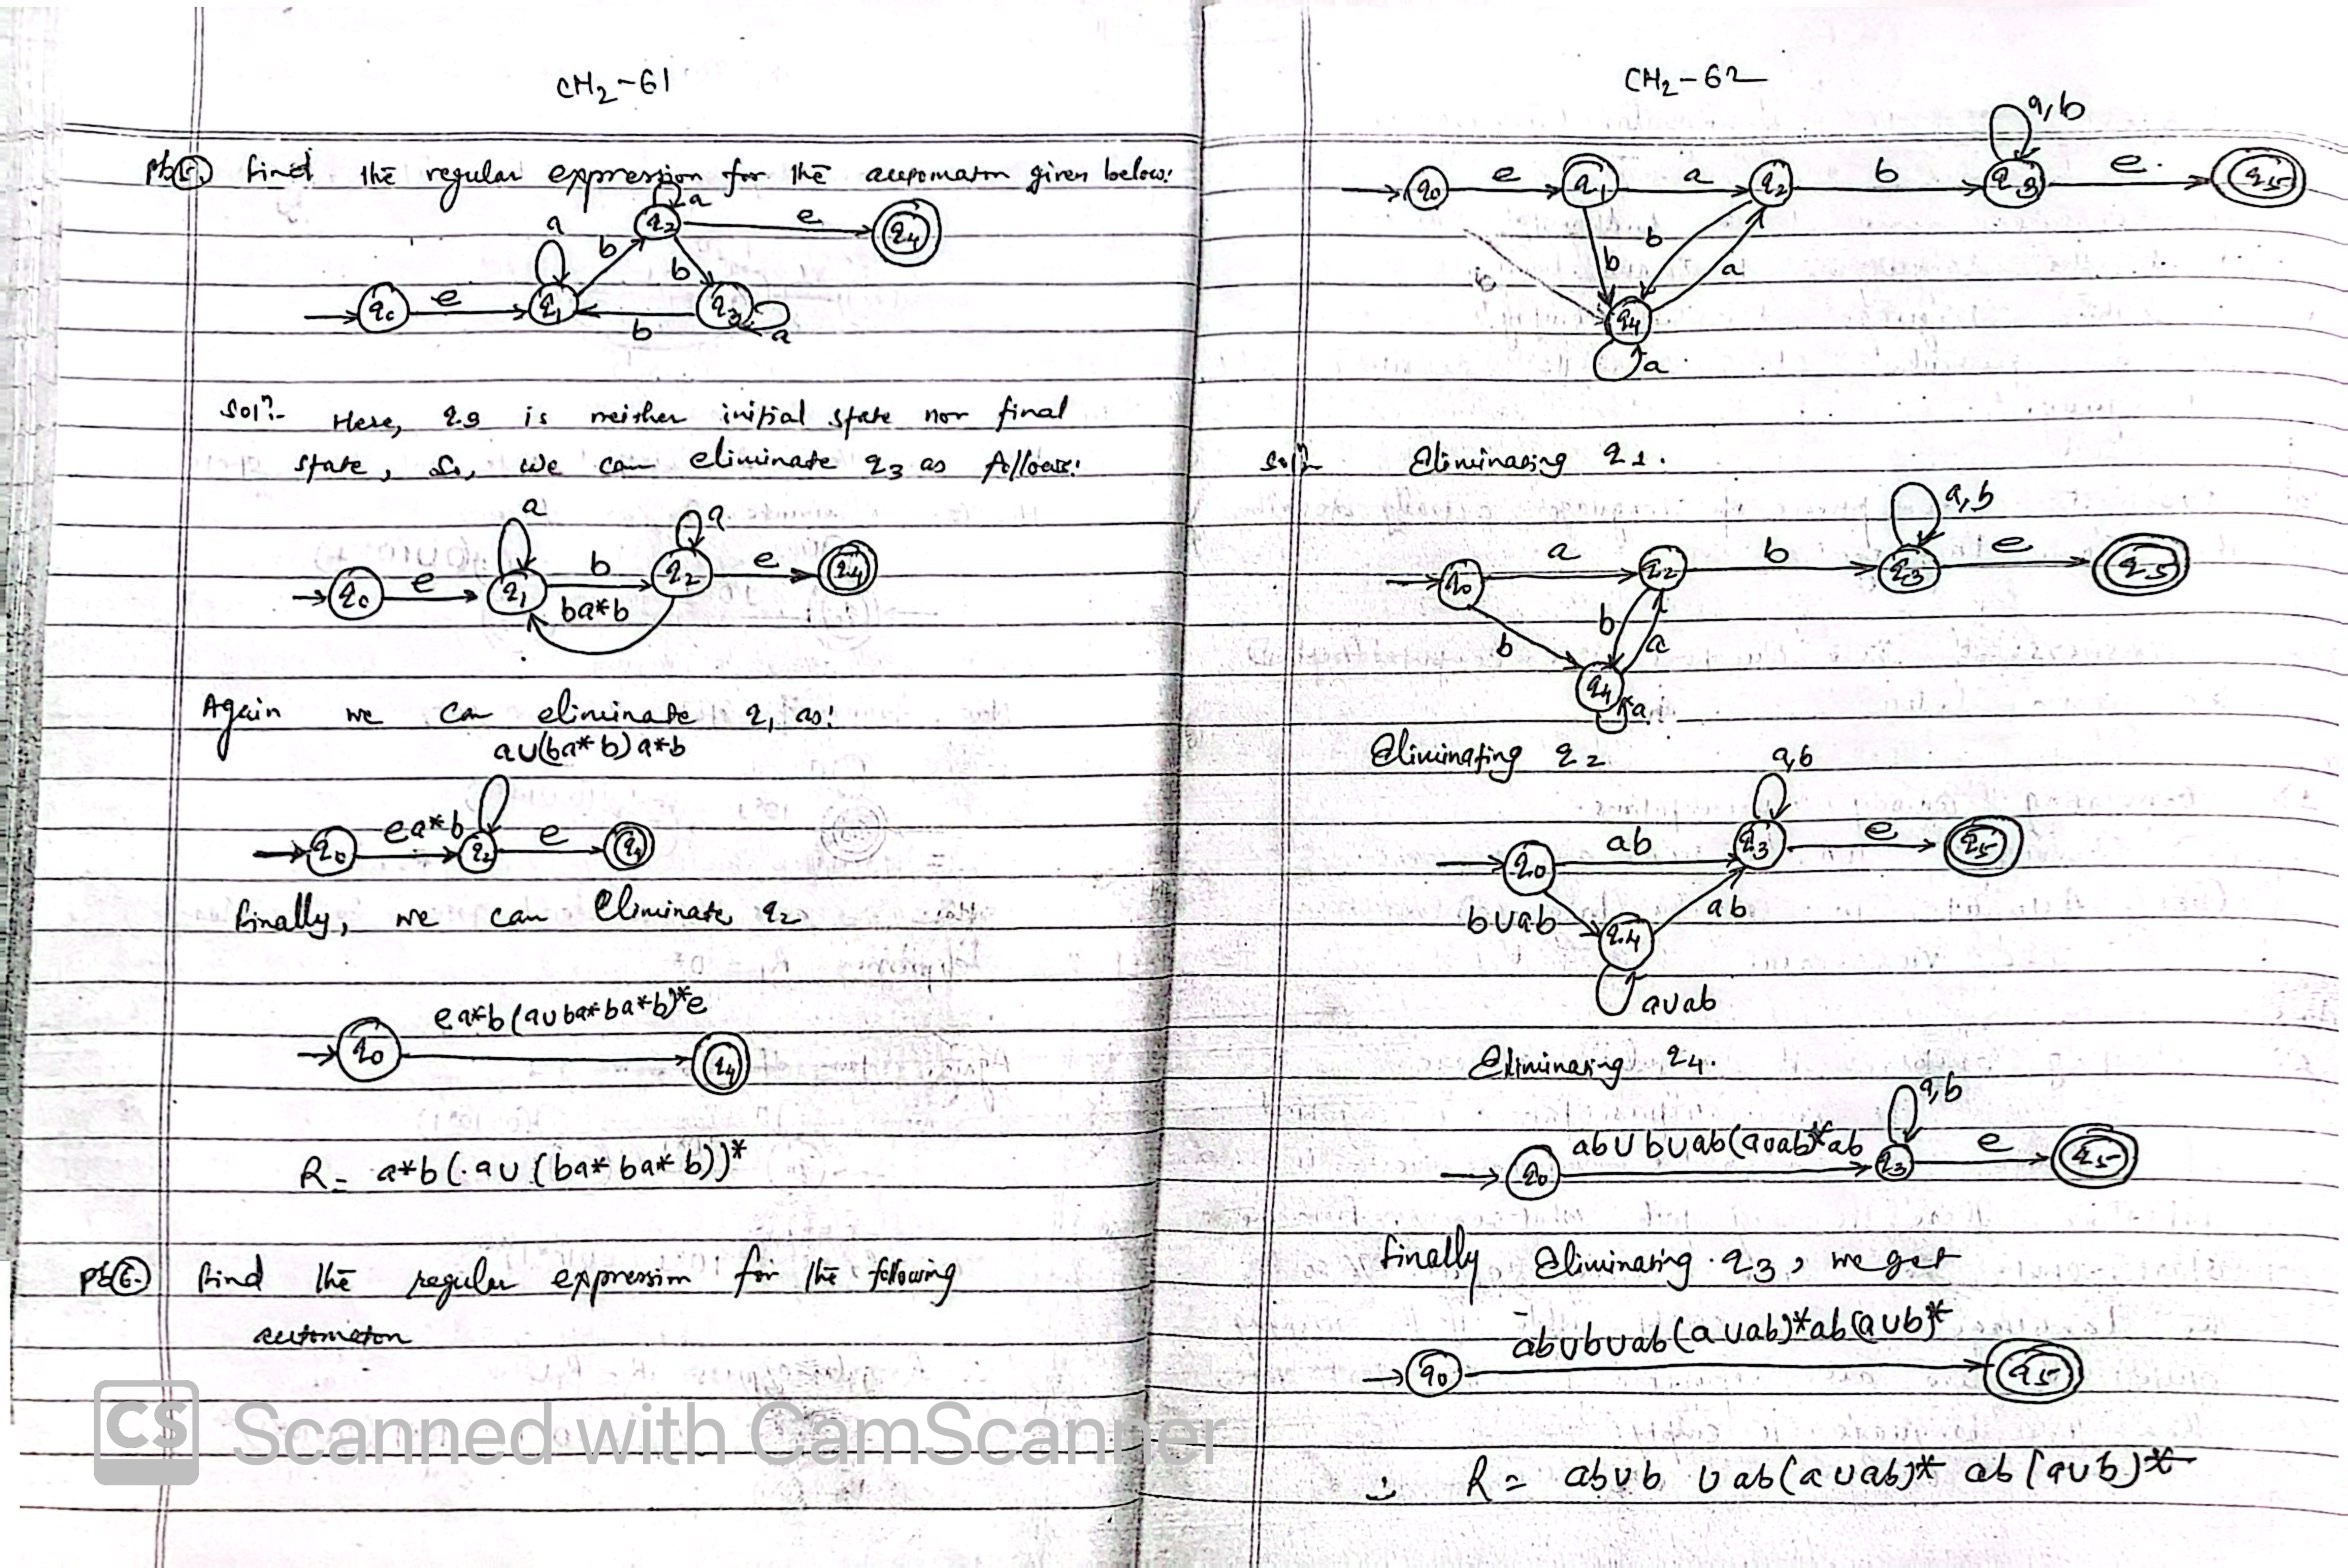 CH2-61
Pb⑤. find the regular expression for the automaton given below:
a
e
q2
q4
a
b
b
q0
e
q1
b
q3
a
Sol?:- Here, q3 is neither initial state nor final
state, So, we can eliminate q3 as follows:
a
a
q0
e
q1
b
q2
e
q4
ba*b
Again we can eliminate q1 as:
a∪(ba*b)a*b
q0
ea*b
q2
e
q4
finally, we can Eliminate q2
ea*b(a∪ba*ba*b)*e
q0
q4
R = a*b(a∪(ba*ba*b))*
Pb⑥. find the regular expression for the following
automaton
CS Scanned with CamScanner
CH2-62
a,b
q0
e
q1
a
q2
b
q3
e
q5
b
b
b
a
q4
a
Sol? Eliminating q1.
a,b
q0
a
q2
b
q3
e
q5
b
b
a
q4
a
Eliminating q2
a,b
q0
ab
q3
e
q5
b∪ab
q4
ab
a∪ab
Eliminating q4.
a,b
ab∪b∪ab(a∪ab)*ab
q0
q3
e
q5
finally Eliminating q3, we get
ab∪b∪ab(a∪ab)*ab(a∪b)*
q0
q5
∴ R = ab∪b ∪ab(a∪ab)* ab(a∪b)*